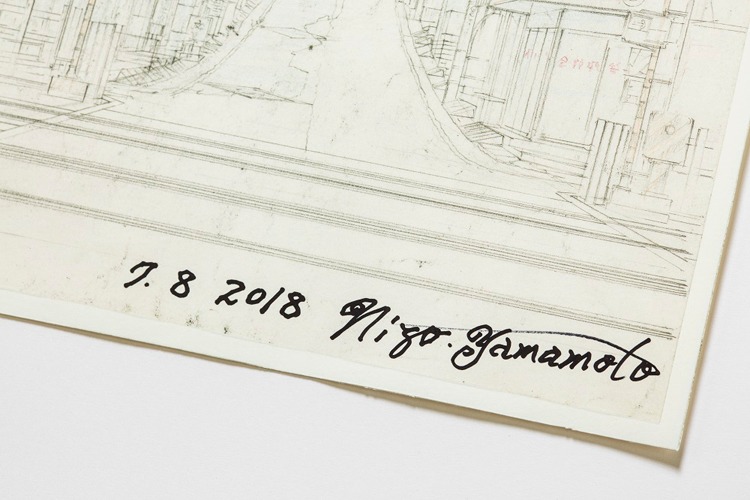 7. 8 2018 Nizo. Yamamoto